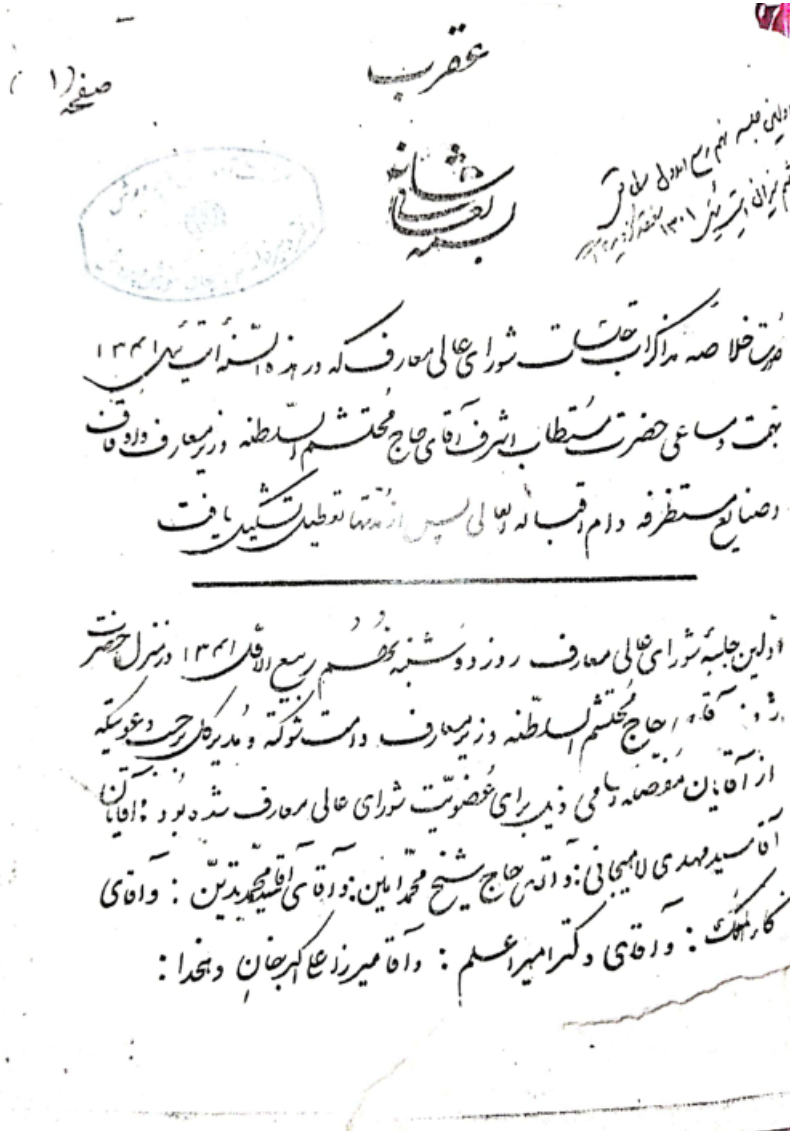 عقرب
صفحه (۱)
اولین جلسه نهم ربیع الاول
۱۳۰۱
بسمه تعالی شانه
خلاصه مذاکرات جلسات شورای عالی معارف که در هذه السنه ایت ئیل ۱۳۴۱
بهمت و مساعی حضرت مستطاب اشرف آقای حاج محتشم السلطنه وزیر معارف و اوقاف
و صنایع مستظرفه دام اقباله العالی پس از مدتها تعطیل تشکیل یافت
اولین جلسهٔ شورای عالی معارف روز دوشنبه نهم ربیع الاول ۱۳۴۱ در منزل حضرت
آقای حاج محتشم السلطنه وزیر معارف دامت شوکته و مدیر کل بر حسب دعوتیکه
از آقایان مفصله اسامی ذیل برای عضویت شورای عالی معارف شده بود: آقایان
آقا سید مهدی لاهیجانی: و آقای حاج شیخ محمد امین: و آقای آقا سید محمد تدین: و آقای
و آقای دکتر امیر اعلم: و آقا میرزا علی اکبر خان دهخدا: